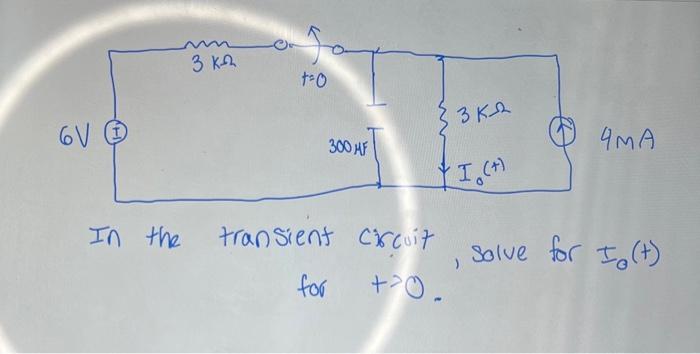 3 KΩ
t=0
6V
300 μF
3 KΩ
I₀(t)
4mA
In the transient circuit, solve for I₀(t)
for t>0.